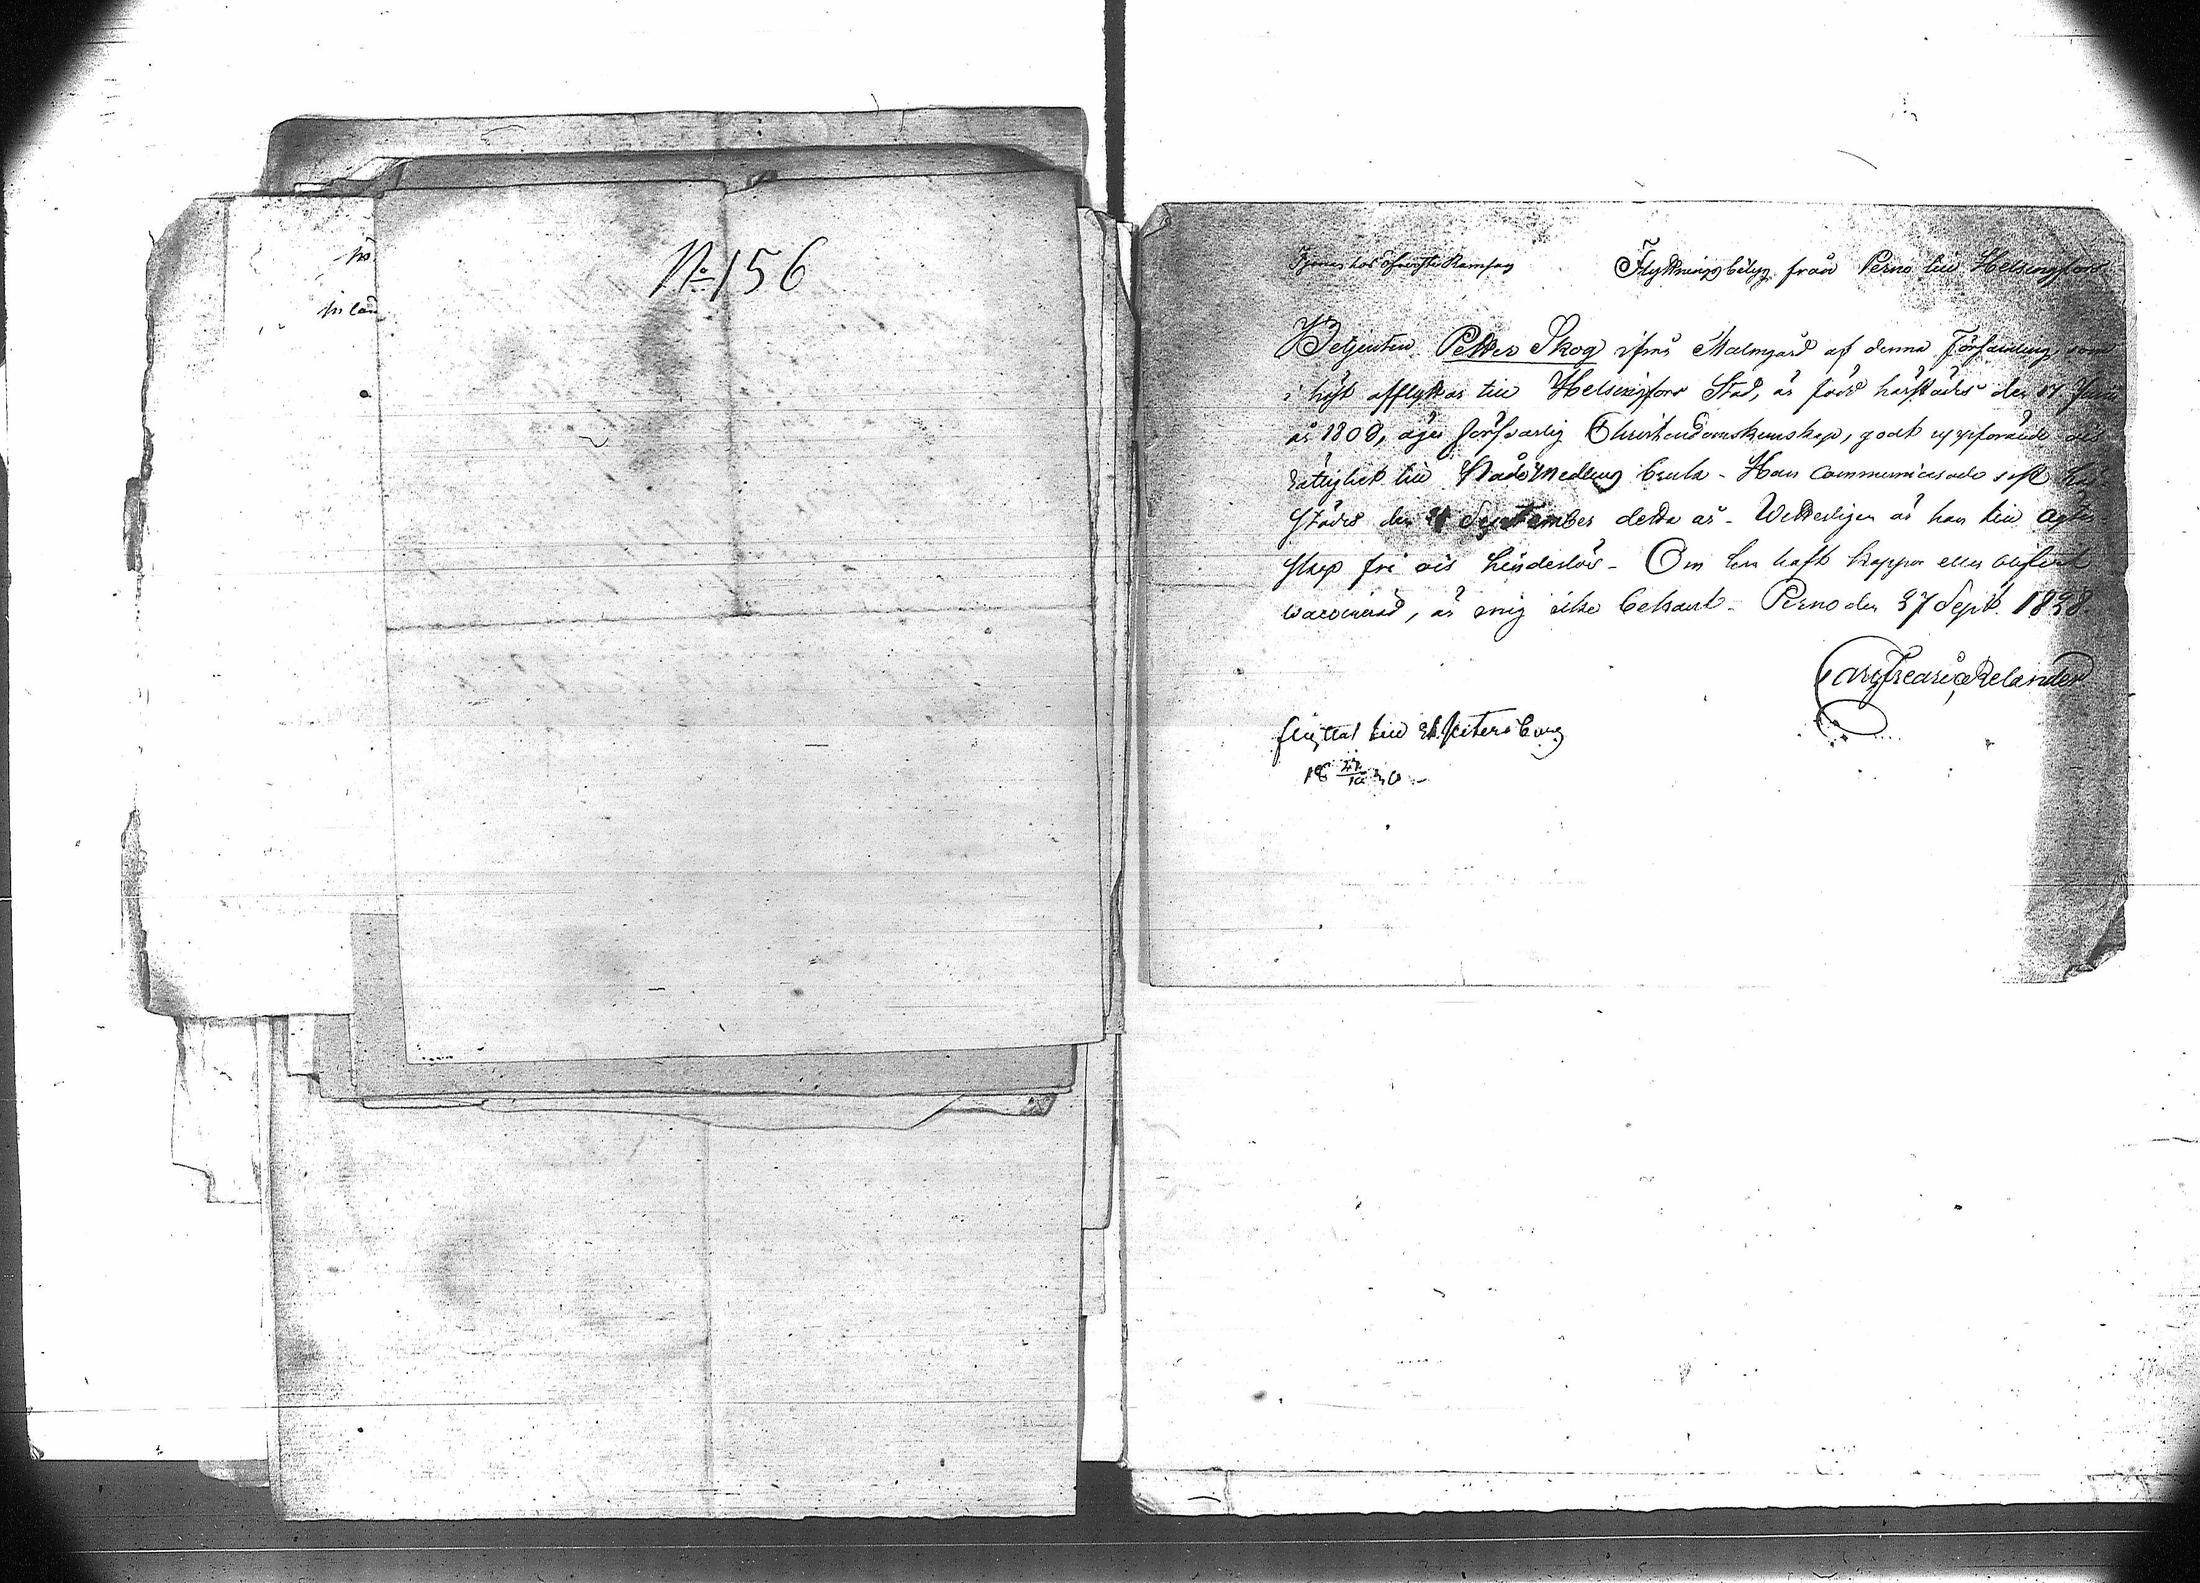 No 156
Tjenar hos Öfverste Ramsay
Flyttningsbetyg från Perno till Helsingfors
Betjenten Petter Skog ifrån Malmgård af denna Församling, som
i höst afflyttar till Helsingfors Stad, är född härstädes den 17 Junii
år 1808, äger försvarlig Christendomskunskap, godt uppförande och
rättighet till Nådemedlens bruk - Han communicerade sist här
städes den September detta år - Wetterligen är han till ägten
skap fri och hinderlös - Om han haft koppor eller blifvit
vaccinerad, är mig icke bekant - Perno den 27 Sept. 1828
Carl Fredric Relander
flyttat till St. Petersburg